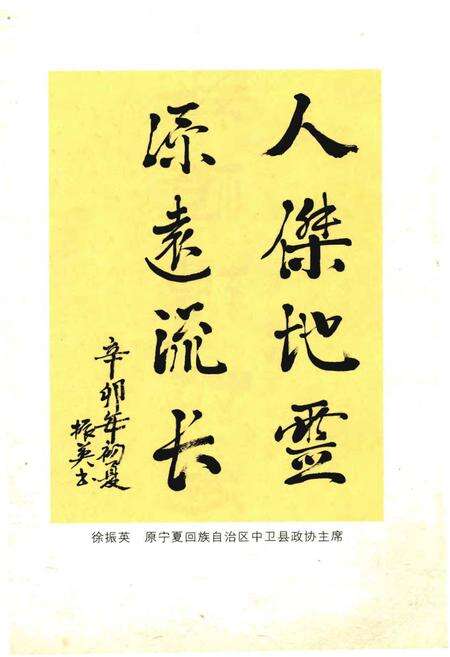 人傑地靈
源遠流长
辛卯年初夏
振英书
徐振英 原宁夏回族自治区中卫县政协主席